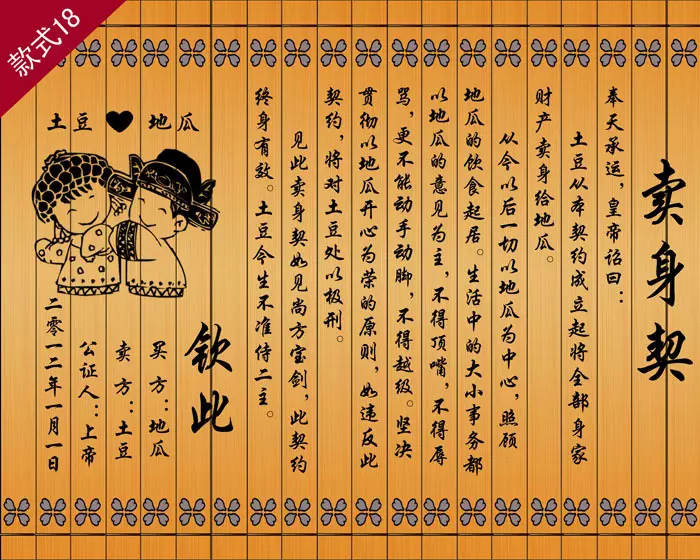 款式18
卖身契
奉天承运，皇帝诏曰：
土豆从本契约成立起将全部身家
财产卖身给地瓜。
从今以后一切以地瓜为中心，照顾
地瓜的饮食起居。生活中的大小事务都
以地瓜的意见为主，不得顶嘴，不得辱
骂，更不能动手动脚，不得越级。坚决
贯彻以地瓜开心为荣的原则，如违反此
契约，将对土豆处以极刑。
见此卖身契如见尚方宝剑，此契约
终身有效。土豆今生不准侍二主。
钦此
土豆 地瓜
买方：地瓜
卖方：土豆
公证人：上帝
二零一二年一月一日